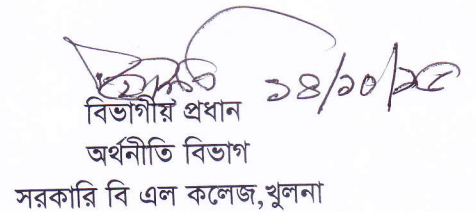 ১৪/১০/১৫
বিভাগীয় প্রধান
অর্থনীতি বিভাগ
সরকারি বি এল কলেজ,খুলনা